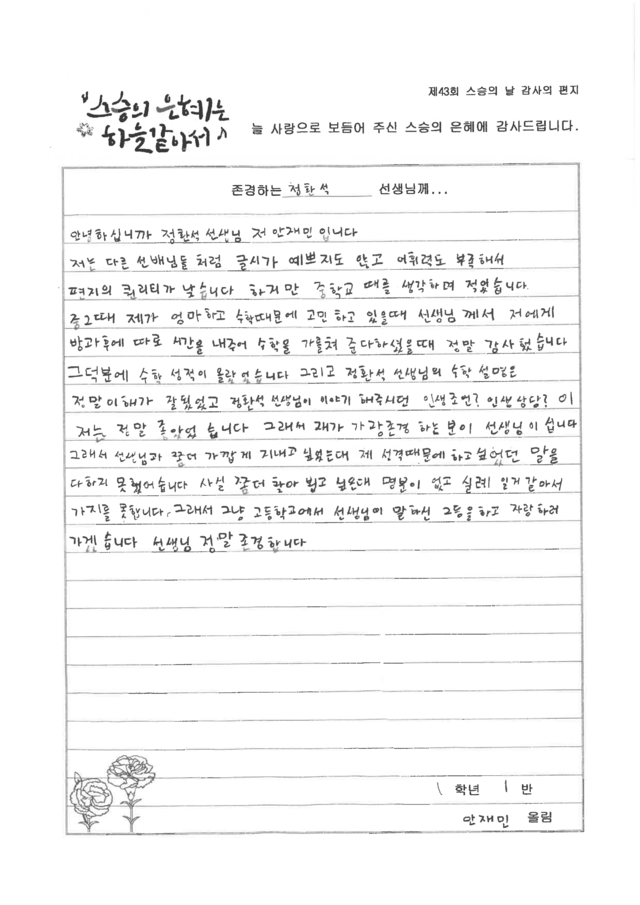 제43회 스승의 날 감사의 편지
"스승의 은혜는
하늘같아서♪
늘 사랑으로 보듬어 주신 스승의 은혜에 감사드립니다.
존경하는 정환석 선생님께...
안녕하십니까 정환석 선생님 저 안재민 입니다
저는 다른 선배님들 처럼 글시가 예쁘지도 않고 어휘력도 부족해서
편지의 퀄리티가 낮습니다 하지만 중학교 때를 생각하며 적었습니다.
중2때 제가 엄마하고 수학때문에 고민 하고 있을때 선생님 께서 저에게
방과후에 따로 시간을 내주어 수학을 가르쳐 준다하셨을때 정말 감사 했습니다
그덕분에 수학 성적이 올랐었습니다 그리고 정환석 선생님의 수학 설명은
정말이해가 잘됬었고 정환석 선생님이 이야기 해주시던 인생조언? 인생 상담? 이
저는 정말 좋았었 습니다 그래서 재가 가장존경 하는 분이 선생님이 십니다
그래서 선생님과 좀더 가깝게 지내고 싶었는대 제 성격때문에 하고싶었던 말을
다하지 못했었습니다 사실 좀더 찾아 뵙고 싶은대 명분이 없고 실례 일거 같아서
가지를 못합니다, 그래서 그냥 고등학교에서 선생님이 말하신 그등을 하고 자랑하러
가겠 습니다 선생님 정말 존경합니다
1 학년 1 반
안재민 올림